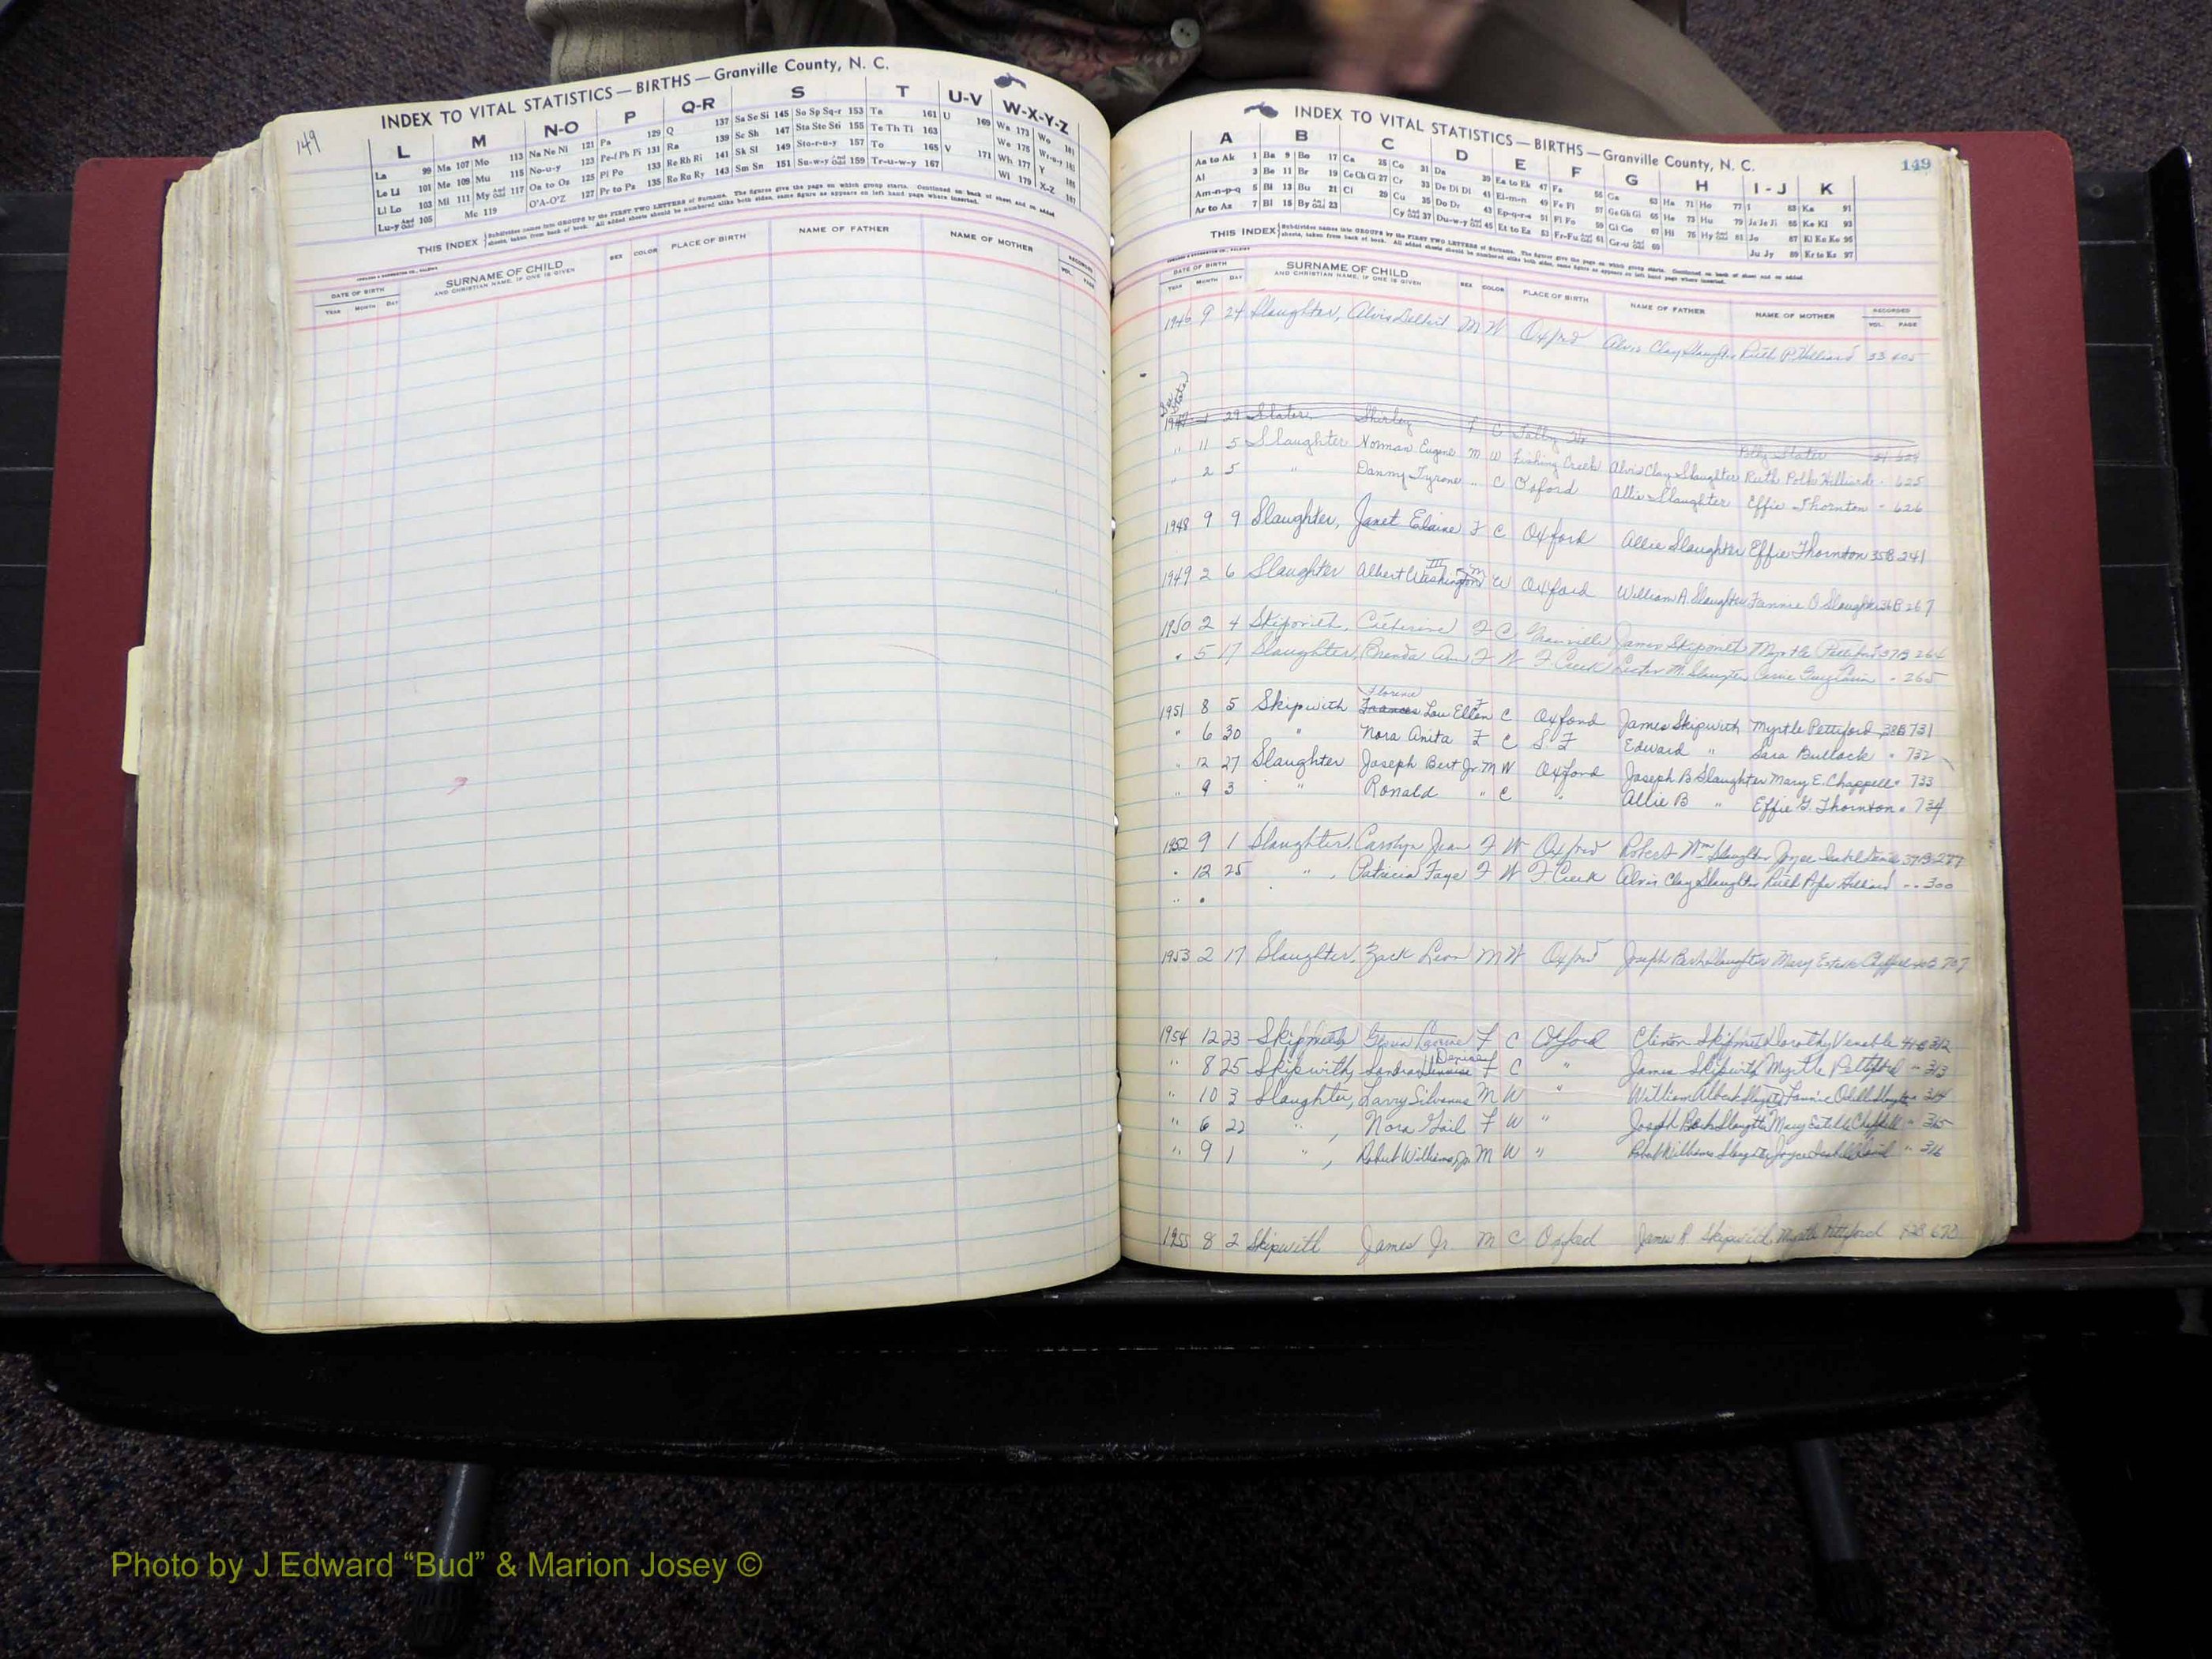 149
INDEX TO VITAL STATISTICS — BIRTHS — Granville County, N. C.
L M N-O P Q-R S T U-V W-X-Y-Z
La 99 Ma 107 Mo 113 Na Ne Ni 121 Pa 129 Q 137 Sa Se Si 145 So Sp Sq-r 153 Ta 161 U 169 Wa 173 Wo 181
Le Li 101 Me 109 Mu 115 No-u-y 123 Pe-f Ph Pi 131 Ra 139 Sc Sh 147 Sta Ste Sti 155 Te Th Ti 163 V 171 We 175 Wr-u-y 183
Ll Lo 103 Mi 111 My And Odd 117 Oa to Oz 125 Pl Po 133 Re Rh Ri 141 Sk Sl 149 Sto-r-u-y 157 To 165 Wh 177 Y 185
Lu-y And Odd 105 Mc 119 O'A-O'Z 127 Pr to Pz 135 Ro Ru Ry 143 Sm Sn 151 Su-w-y And Odd 159 Tr-u-w-y 167 Wi 179 X-Z 187
THIS INDEX Subdivides names into GROUPS by the FIRST TWO LETTERS of Surname. The figures give the page on which group starts. Continued on back of sheet and on added sheets, taken from back of book. All added sheets should be numbered alike both sides, same figure as appears on left hand page where inserted.
DATE OF BIRTH SURNAME OF CHILD SEX COLOR PLACE OF BIRTH NAME OF FATHER NAME OF MOTHER RECORDED
YEAR MONTH DAY AND CHRISTIAN NAME, IF ONE IS GIVEN VOL. PAGE
INDEX TO VITAL STATISTICS — BIRTHS — Granville County, N. C.
149
A B C D E F G H I - J K
Aa to Ak 1 Ba 9 Bo 17 Ca 25 Co 31 Da 39 Ea to Ek 47 Fa 55 Ga 63 Ha 71 Ho 77 I 83 Ka 91
Al 3 Be 11 Br 19 Ce Ch Ci 27 Cr 33 De Di Dl 41 El-m-n 49 Fe Fi 57 Ge Gh Gi 65 He 73 Hu 79 Ja Je Ji 85 Ke Kl 93
Am-n-p-q 5 Bi 13 Bu 21 Cl 29 Cu 35 Do Dr 43 Ep-q-r-s 51 Fl Fo 59 Gl Go 67 Hi 75 Hy And Odd 81 Jo 87 Kl Kn Ko 95
Ar to Az 7 Bl 15 By And Odd 23 Cy And Odd 37 Du-w-y And Odd 45 Et to Ez 53 Fr-Fu And Odd 61 Gr-u And Odd 69 Ju Jy 89 Kr to Kz 97
THIS INDEX Subdivides names into GROUPS by the FIRST TWO LETTERS of Surname. The figures give the page on which group starts. Continued on back of sheet and on added sheets, taken from back of book. All added sheets should be numbered alike both sides, same figure as appears on left hand page where inserted.
DATE OF BIRTH SURNAME OF CHILD SEX COLOR PLACE OF BIRTH NAME OF FATHER NAME OF MOTHER RECORDED
YEAR MONTH DAY AND CHRISTIAN NAME, IF ONE IS GIVEN VOL. PAGE
1946 9 24 Slaughter, Alvis M W Oxford Alvis Clay Slaughter Ruth P. Hilliard 33 605
1947 1 29 Slater Shirley F C Polly Slater
" 11 5 Slaughter Norman Eugene M W Fishing Creek Alvis Clay Slaughter Ruth Polk Hilliard " 625
" 2 5 " Danny Tyrone " C Oxford Allie Slaughter Effie Thornton " 626
1948 9 9 Slaughter, Janet Elaine F C Oxford Allie Slaughter Effie Thornton 35B 241
1949 2 6 Slaughter Albert Washington III M W Oxford William A. Slaughter Fannie O Slaughter 36B 267
1950 2 4 Skipwith, Catherine F C Granville James Skipwith Myrtle Pettiford 37B 264
" 5 17 Slaughter, Brenda Ann F W F Creek Lester M. Slaughter " 265
1951 8 5 Skipwith Frances Florence Lou Ellen F C Oxford James Skipwith Myrtle Pettiford 38B 731
" 6 30 " Nora Anita F C S. F Edward " Sara Bullock " 732
" 12 27 Slaughter Joseph Bert Jr. M W Oxford Joseph B Slaughter Mary E. Chappell " 733
" 9 3 " Ronald " C " Allie B " Effie G. Thornton " 734
1952 9 1 Slaughter, Carolyn Jean F W Oxford Robert Wm Slaughter Joyce
" 12 25 " , Patricia Faye F W F Creek Alvis Clay Slaughter Ruth Hilliard " " 300
"
1953 2 17 Slaughter, Zack Leon M W Oxford Joseph Slaughter Mary Estelle Chappell 40B 707
1954 12 23 Skipwith F C Oxford Clinton Skipwith Dorothy Venable 41B 312
" 8 25 Skipwith, Sandra Denise F C " James Skipwith Myrtle Pettiford " 313
" 10 3 Slaughter, Larry M W " William Albert Slaughter Fannie " 314
" 6 22 " , Nora Gail F W " Joseph Slaughter Mary Estelle Chappell " 315
" 9 1 " , Robert William Jr M W " Robert William Slaughter Joyce " 316
1955 8 2 Skipwith James Jr M C Oxford James R Skipwith Myrtle Pettiford 42B 670
Photo by J Edward “Bud” & Marion Josey ©